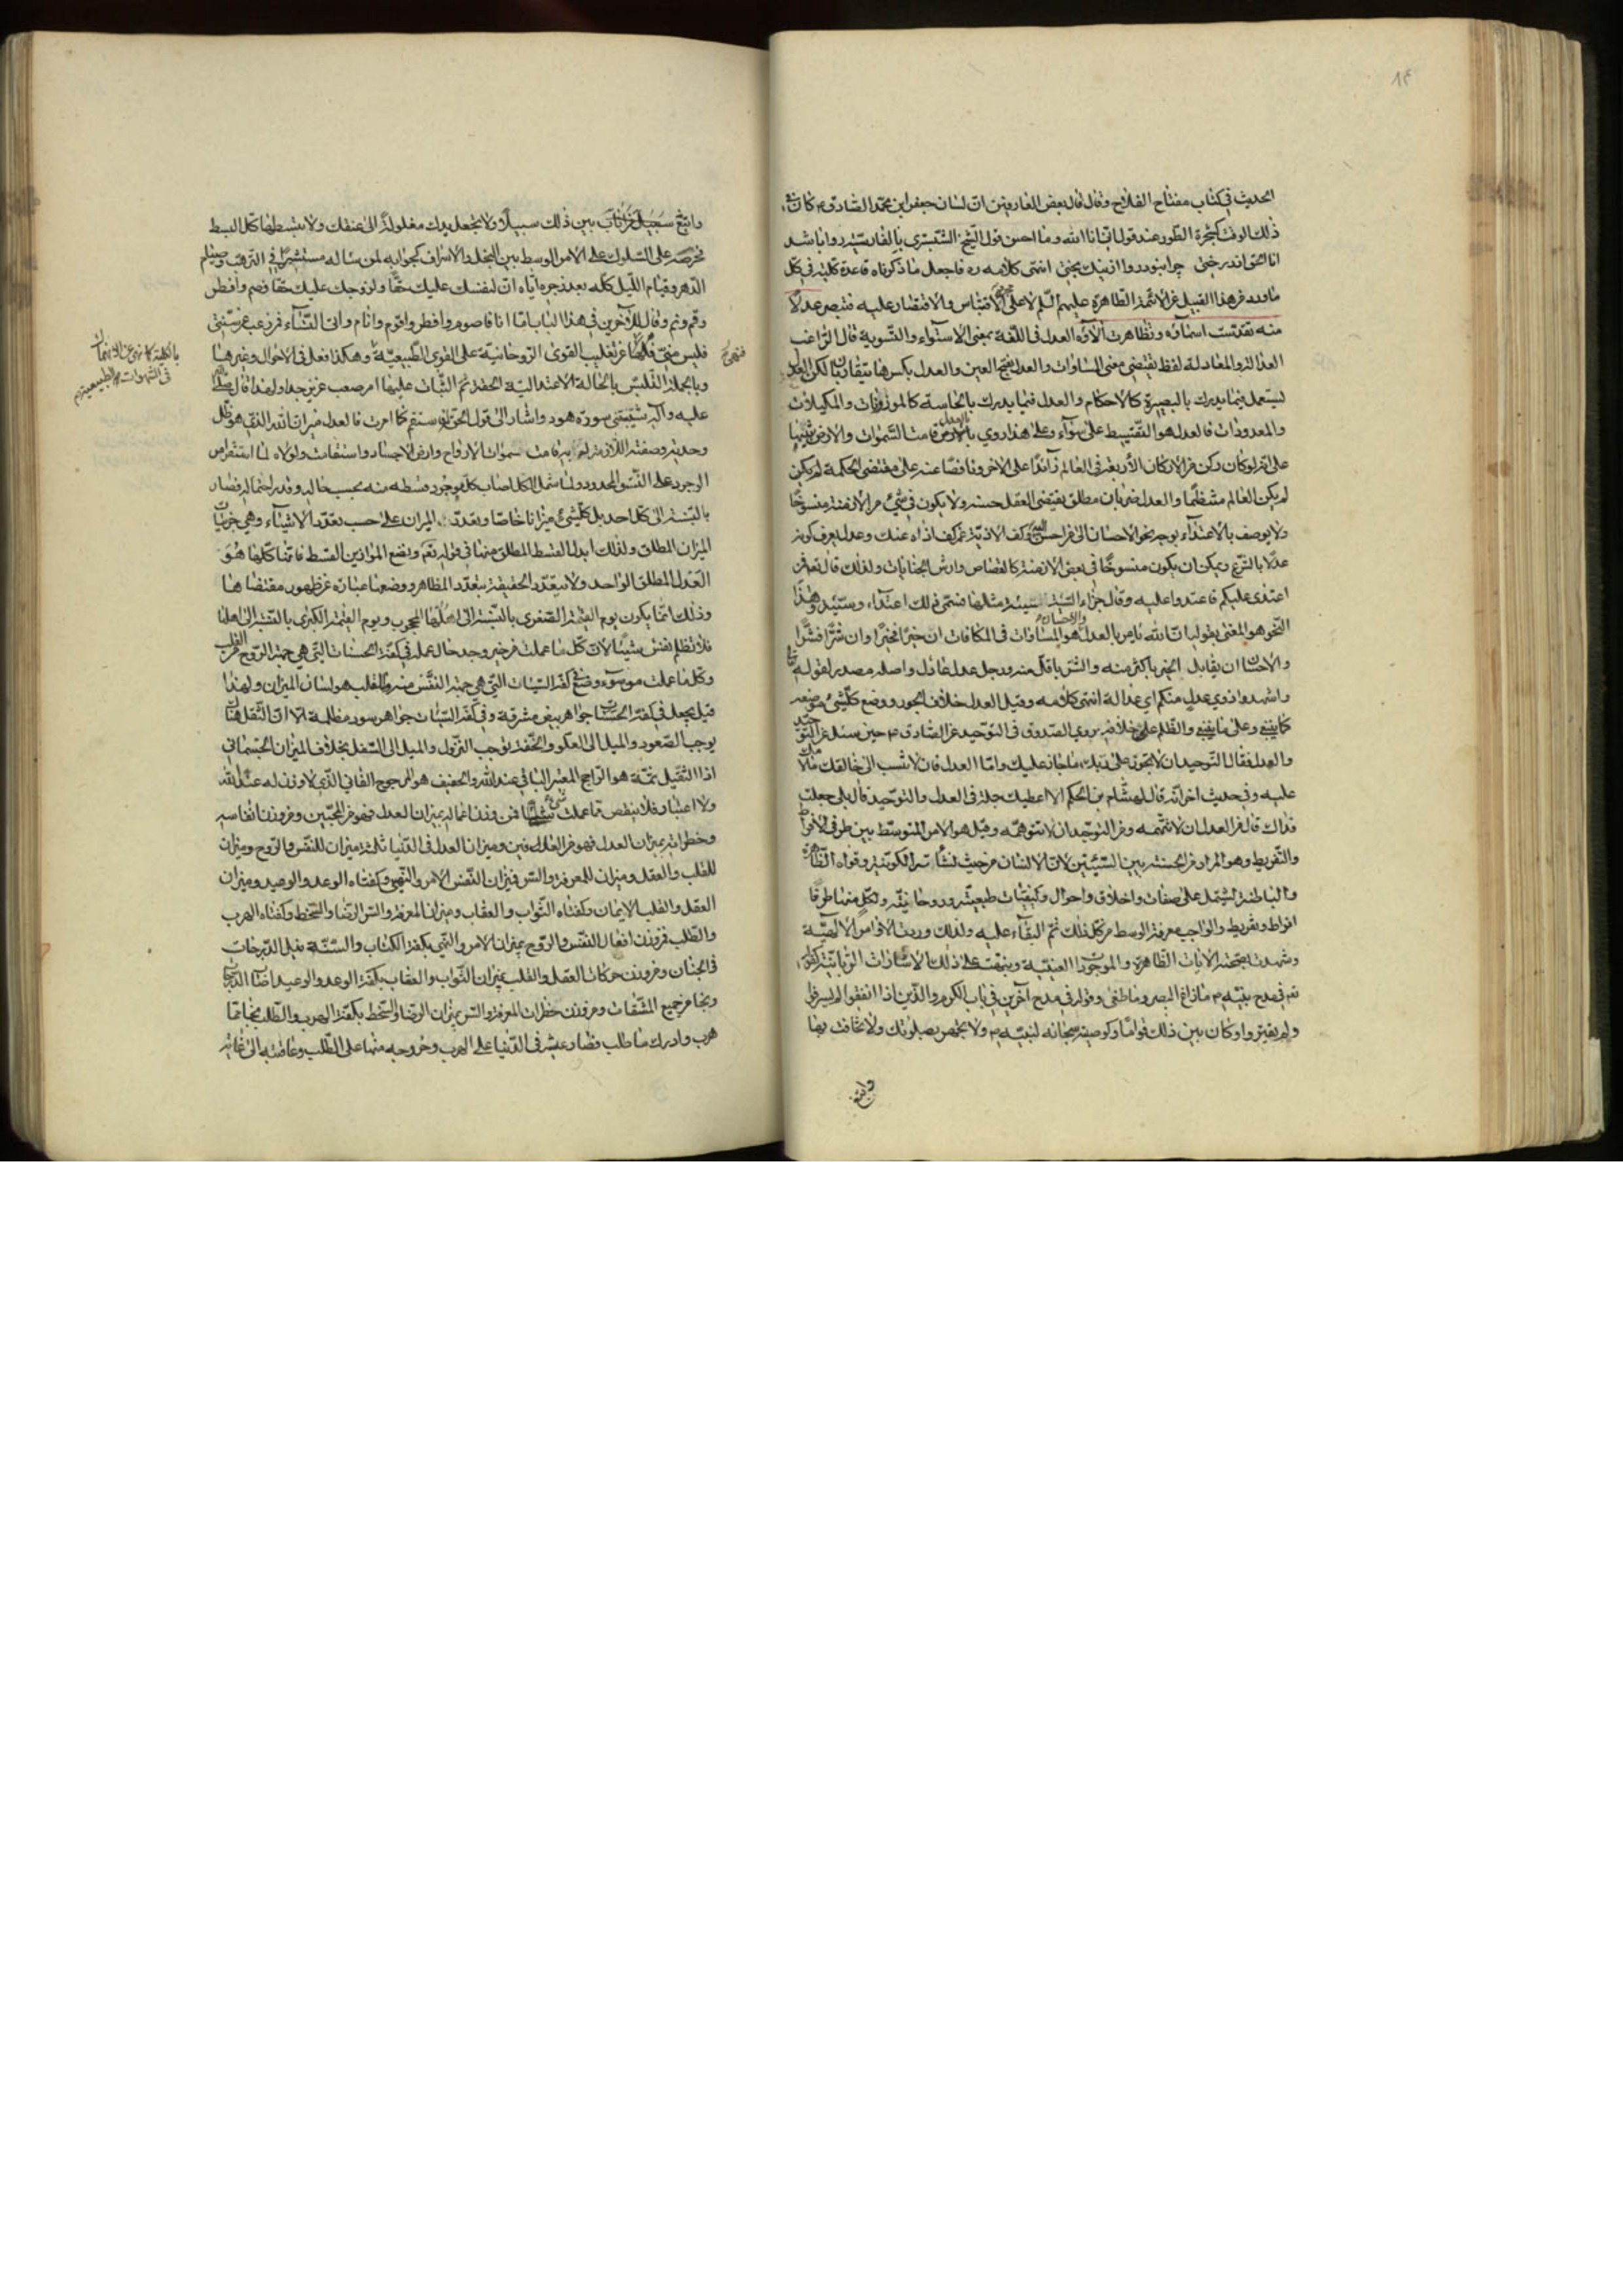 ١٤
الحديث في كتاب مفتاح الفلاح وقال قال بعض العارفين ان لسان جعفر ابن محمد الصادق ع كان في
ذلك الوقت كشجرة الطور عند قول اني انا الله وما احسن قول الشيخ الشبستري بالفارسية روا باشد
انا الحق اندر درختى چرا نبود روا از نيك بختى انتهى كلامه ره فاجعل ما ذكرناه قاعدة كلية في كل
ما ورد من هذا القبيل عن الائمة الطاهرة عليهم السلم لا على الاقتباس والاقتصار عليه فتبصر عدلاً
منه تقدست اسماؤه وتظاهرت آلاؤه العدل في اللغة بمعنى الاستواء والتسوية قال الراغب
العدالة والمعادلة لفظ يقتضي معنى المساوات والعدل بفتح العين والعدل بكسرها يتقاربان لكن العدل
يستعمل فيما يدرك بالبصيرة كالاحكام والعدل فيما يدرك بالحاسة كالموزونات والمكيلات
والمعدودات فالعدل هو التقسيط على سواء وعلى هذا روي بالعدل قامت السموات والارض تنبيها
على انه لو كان ركن من الاركان الأربعة في العالم زائدًا على الاخر وناقصًا عنه على مقتضى الحكمة لم يكن
لم يكن العالم منتظمًا والعدل ضربان مطلق يقتضي العقل حسنه ولا يكون في شيء من الازمنة منسوخًا
ولا يوصف بالاعتداء بوجه نحو الاحسان الى من احسن اليك وكف الاذية عمن كف اذاه عنك وعدل يعرف كونه
عدلًا بالشرع ويمكن ان يكون منسوخًا في بعض الازمنة كالقصاص وارش الجنايات ولذلك قال تعالى فمن
اعتدى عليكم فاعتدوا عليه وقال جزاء السيئة سيئة مثلها فسمى ذلك اعتداء وسيئة وهذا
النحو هو المعنى بقوله ان الله يامر بالعدل والاحسان فالعدل هو المساوات في المكافات ان خيرًا فخيرًا وان شرًا فشرًا
والاحسان ان يقابل الخير باكثر منه والشر باقل منه ورجل عدل عادل واصله مصدر لقوله تعالى
واشهدوا ذوي عدل منكم اي عدالة انتهى كلامه وقيل العدل خلاف الجور ووضع كل شيء موضعه
كما ينبغي وعلى ما ينبغي والظلم على خلافه روى الصدوق في التوحيد عن الصادق ع حين سئل عن التوحيد
والعدل فقال التوحيد ان لا تجوز على ربك ما جاز عليك واما العدل فان لا تنسب الى خالقك ما لامك
عليه وفي حديث اخر انه قال لهشام بن الحكم الا اعطيك جملة في العدل والتوحيد قال بلى جعلت
فداك قال من العدل ان لا تتهمه ومن التوحيد ان لا تتوهمه وقيل هو الامر المتوسط بين طرفي الافراط
والتفريط وهو المراد من الحسنة بين السيئتين لان الانسان من حيث نشأته الكونية وقواه الظاهرة
والباطنة يشتمل على صفات واخلاق واحوال وكيفيات طبيعية وروحانية ولكل منها طرفا
افراط وتفريط والواجب معرفة الوسط من كل ذلك ثم البقاء عليه ولذلك وردت الاوامر الالهية
وشهدت بصحته الايات الظاهرة والموجودات العينية وينبهت على ذلك الاشارات الربانية كقوله
تع في مدح نبيه ص ما زاغ البصر وما طغى وقوله في مدح آخرين في باب الكرم والذين اذا انفقوا لم يسرفوا
ولم يقتروا وكان بين ذلك قوامًا وكوصيته سبحانه لنبيه ص ولا تجهر بصلوتك ولا تخافت بها
وابتغ
وابتغ بين ذلك سبيلا ولا تجعل يدك مغلولة الى عنقك ولا تبسطها كل البسط
تحرضه على السلوك على الامر الوسط بين البخل والاسراف كجوابه لمن ساله مستشيرًا في الترهب وصيام
الدهر وقيام الليل كله بعد زجره اياه ان لنفسك عليك حقًا ولزوجك عليك حقا فصم وافطر
وقم ونم وقال للآخرين في هذا الباب اما انا فاصوم وافطر واقوم وانام وآتي النساء فمن رغب عن سنتي
فليس مني فنهى عن تغليب القوى الروحانية على القوى الطبيعية وهكذا فعل في الاحوال وغيرها
فنهى
بالكلية كما نهى عن الانهماك
في الشهوات الطبيعية م
وبالجملة التلبس بالحالة الاعتدالية الحقة ثم الثبات عليها امر صعب عزيز جدا ولهذا قال صلى الله
عليه وآله شيبتني سورة هود واشار الى قول الحق فاستقم كما امرت فالعدل ميزان الله الذي هو ظل
وحدته وصفته اللازمة له به قامت سموات الارواح وارض الاجساد واستقامت ولولاه لما استقر امر
الوجود على النسق المحدود ولما شمل الكل اصاب كل موجود قسطه منه بحسب حاله وقدر احتماله فصار
بالنسبة الى كل احد بل كل شيء ميزانا خاصا وتعدد الميزان على حسب تعدد الاشياء وهي جزئيات
الميزان المطلق ولذلك ابدل القسط المطلق منها في قوله تعم ونضع الموازين القسط فانها كلها هو
العدل المطلق الواحد ولا تعدد الحقيقة بتعدد المظاهر ووضعها عبارة عن ظهور مقتضاها
وذلك انما يكون يوم القيمة الصغرى بالنسبة الى اهلها المحجوب ويوم القيمة الكبرى بالنسبة الى اهلها
فلا تظلم نفس شيئًا لان كل ما عملت من خير وجد حال عمله في كفة الحسنات التي هي جهة الروح من القلب
وكل ما عملت من سوء وضع في كفة السيئات التي هي جهة النفس منه والقلب هو لسان الميزان ولهذا
قيل يجعل في كفة الحسنات جواهر بيض مشرقة وفي كفة السيئات جواهر سود مظلمة الا ان الثقل هناك
يوجب الصعود والميل الى العلو والخفة توجب النزول والميل الى السفل بخلاف الميزان الجسماني
اذ الثقيل ثمة هو الراجح المعتبر الباقي عند الله والخفيف هو المرجوح الفاني الذي لا وزن له عند الله
ولا اعتبار فلا ينقص مما عملت شيء فمن وزن اعماله بميزان العدل فهو من المحبين ومن وزن انفاسه
وخطراته بميزان العدل فهو من العارفين وميزان العدل في الدنيا ثلثة ميزان للنفس والروح وميزان
للقلب والعقل وميزان للمعرفة والسر فميزان النفس الامر والنهي وكفتاه الوعد والوعيد وميزان
العقل والقلب الايمان وكفتاه الثواب والعقاب وميزان المعرفة والسر الرضا والسخط وكفتاه الهرب
والطلب فمن وزن افعال النفس والروح بميزان الامر والنهي بكفة الكتاب والسنة ينل الدرجات
في الجنان ومن وزن حركات العقل والقلب بميزان الثواب والعقاب بكفة الوعد والوعيد
ونجا من جميع المشقات ومن وزن خطرات المعرفة والسر بميزان الرضا والسخط بكفة الهرب والطلب نجا مما
هرب وادرك ما طلب فصار عيشه في الدنيا على الهرب وخروجه منها على الطلب وعاقبته الى غاية